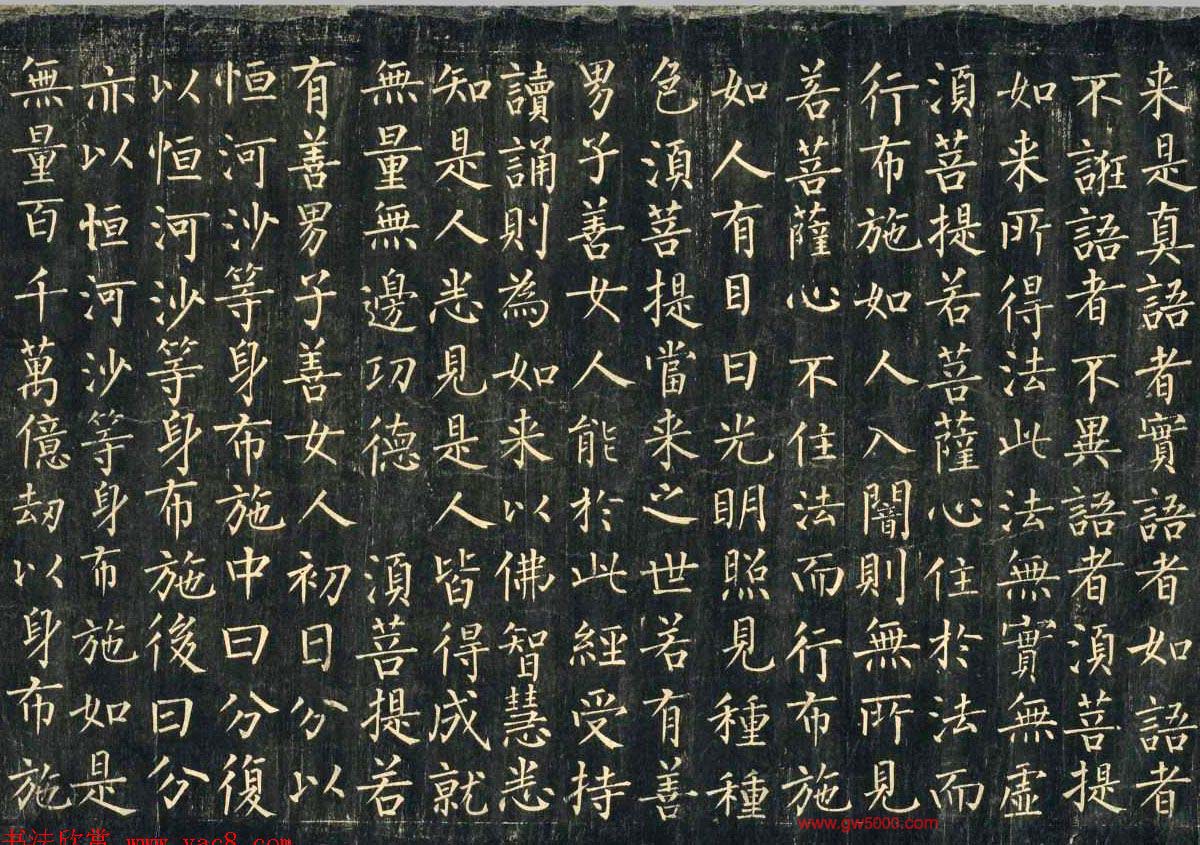 来是真語者實語者如語者
不誑語者不異語者湏菩提
如来所得法此法無實無虛
湏菩提若菩薩心住於法而
行布施如人入闇則無所見
若菩薩心不住法而行布施
如人有目日光明照見種種
色湏菩提當来之世若有善
男子善女人能於此經受持
讀誦則為如来以佛智慧悉
知是人悉見是人皆得成就
無量無邊功德湏菩提若
有善男子善女人初日分以
恒河沙等身布施中日分復
以恒河沙等身布施後日分
亦以恒河沙等身布施如是
無量百千萬億劫以身布施
www.gw5000.com
书法欣赏 www.yac8.com